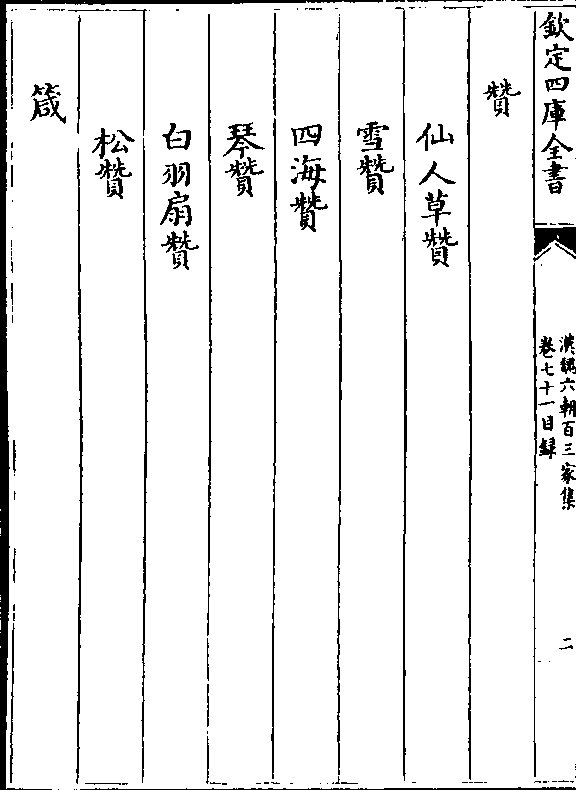 欽定四庫全書
漢魏六朝百三家集
卷七十一目録
二
贊
仙人草贊
雪贊
四海贊
琴贊
白羽扇贊
松贊
箴